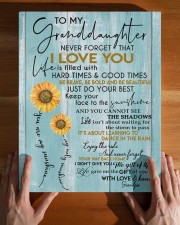 TO MY
Granddaughter
NEVER FORGET THAT
I LOVE YOU
Life is filled with
HARD TIMES & GOOD TIMES
BE BRAVE, BE BOLD AND BE BEAUTIFUL
JUST DO YOUR BEST
Keep your
face to the sunshine
AND YOU CANNOT SEE
THE SHADOWS
Life isn't about waiting for
the storm to pass
IT'S ABOUT LEARNING TO
DANCE IN THE RAIN
Enjoy the ride
And never forget
YOUR WAY BACK HOME
I DIDN'T GIVE YOU the gift of life
Life gave me the GIFT OF YOU
WITH LOVE
Grandpa
you are my sunshine